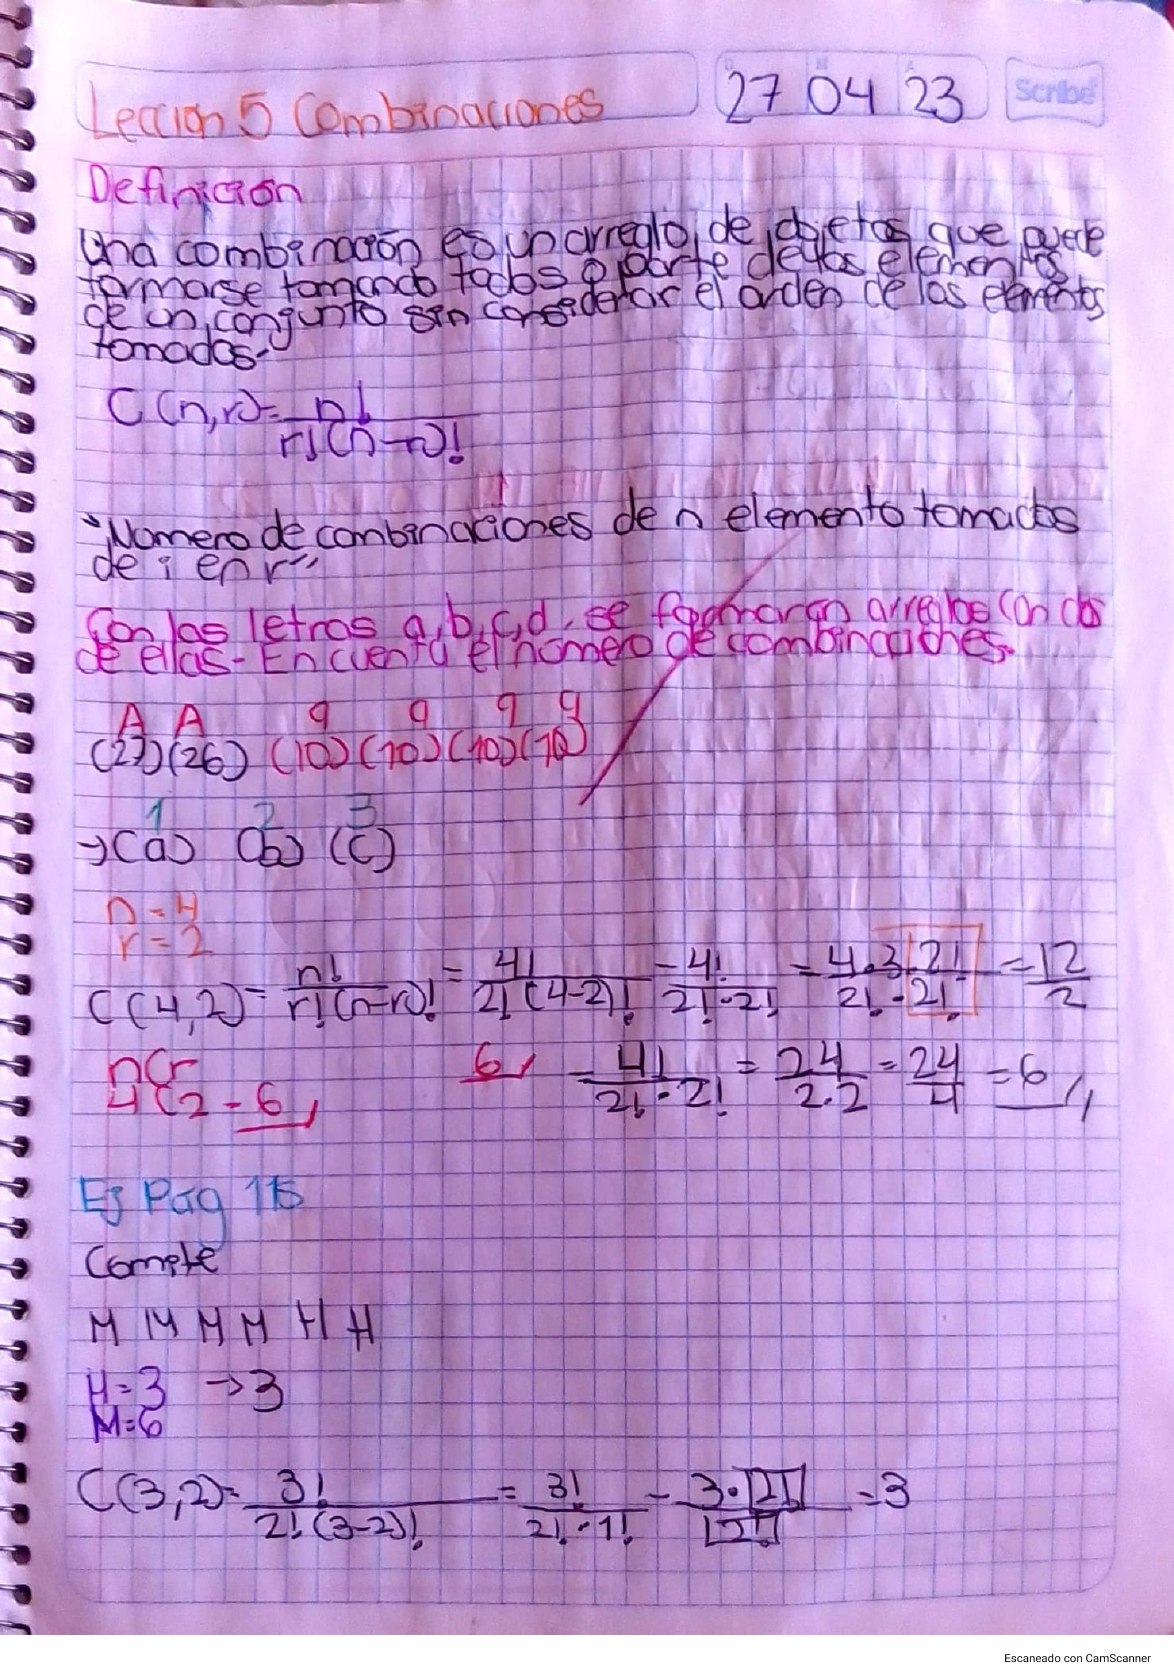 Leccion 5 Combinaciones
27 04 23
Scribe
Definicion
Una combinación es un arreglo de objetos que puede
formarse tomando todos o parte de los elementos
de un conjunto sin considerar el orden de los elementos
tomados.
C(n,r)= n! / r!(n-r)!
"Numero de combinaciones de n elemento tomados
de r en r"
Con las letras a, b, c, d, se formaran arreglos con dos
de ellas. Encuentra el número de combinaciones.
A A 9 9 9 9
(27)(26) (10)(10)(10)(10)
1 2 3
→(a) (b) (c)
n=4
r=2
C(4,2)= n! / r!(n-r)! = 4! / 2!(4-2)! = 4! / 2!·2! = 4·3·2! / 2!·2! = 12 / 2
nCr
6 = 4! / 2!·2! = 24 / 2·2 = 24 / 4 = 6
4C2 - 6
Ej Pag 115
Comite
M M M M H H
H=3 →3
M=6
C(3,2)= 3! / 2!(3-2)! = 3! / 2!·1! = 3·2! / 2! = 3
Escaneado con CamScanner